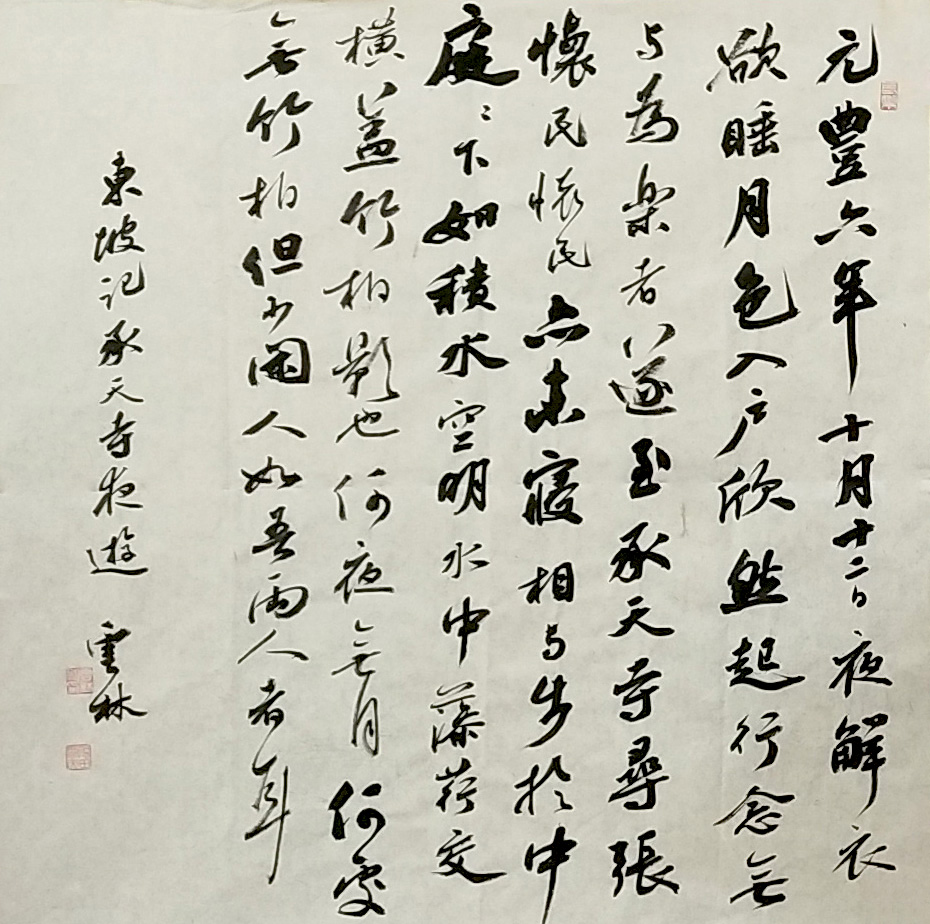 元豐六年十月十二日夜解衣
欲睡月色入户欣然起行念無
与為樂者遂至承天寺尋張
懷民懷民亦未寢相与步於中
庭〻下如積水空明水中藻荇交
橫蓋竹柏影也何夜無月何處
無竹柏但少閑人如吾兩人者耳
東坡记承天寺夜遊 雲林